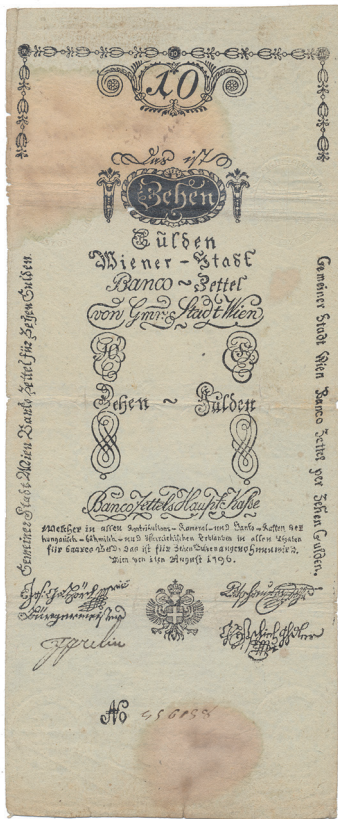 10
Das ist
Zehen
Gulden
Wiener-Stadt
Banco ~ Zettel
von Gmr: Stadt Wien
Zehen ~ Gulden
Banco Zettels Haupt Kaße
welcher in allen Kontributions- Kameral- und Banko-Kassen der
hungarisch- böhmisch- und österreichischen Erblanden in allen Gaben
für baares Geld, das ist für Zehen Gulden angenohmen wird.
Wien den 1ten August 1796.
Gemeiner Stadt Wien Banco Zettel für Zehen Gulden.
Gemeiner Stadt Wien Banco Zettel per Zehen Gulden.
No